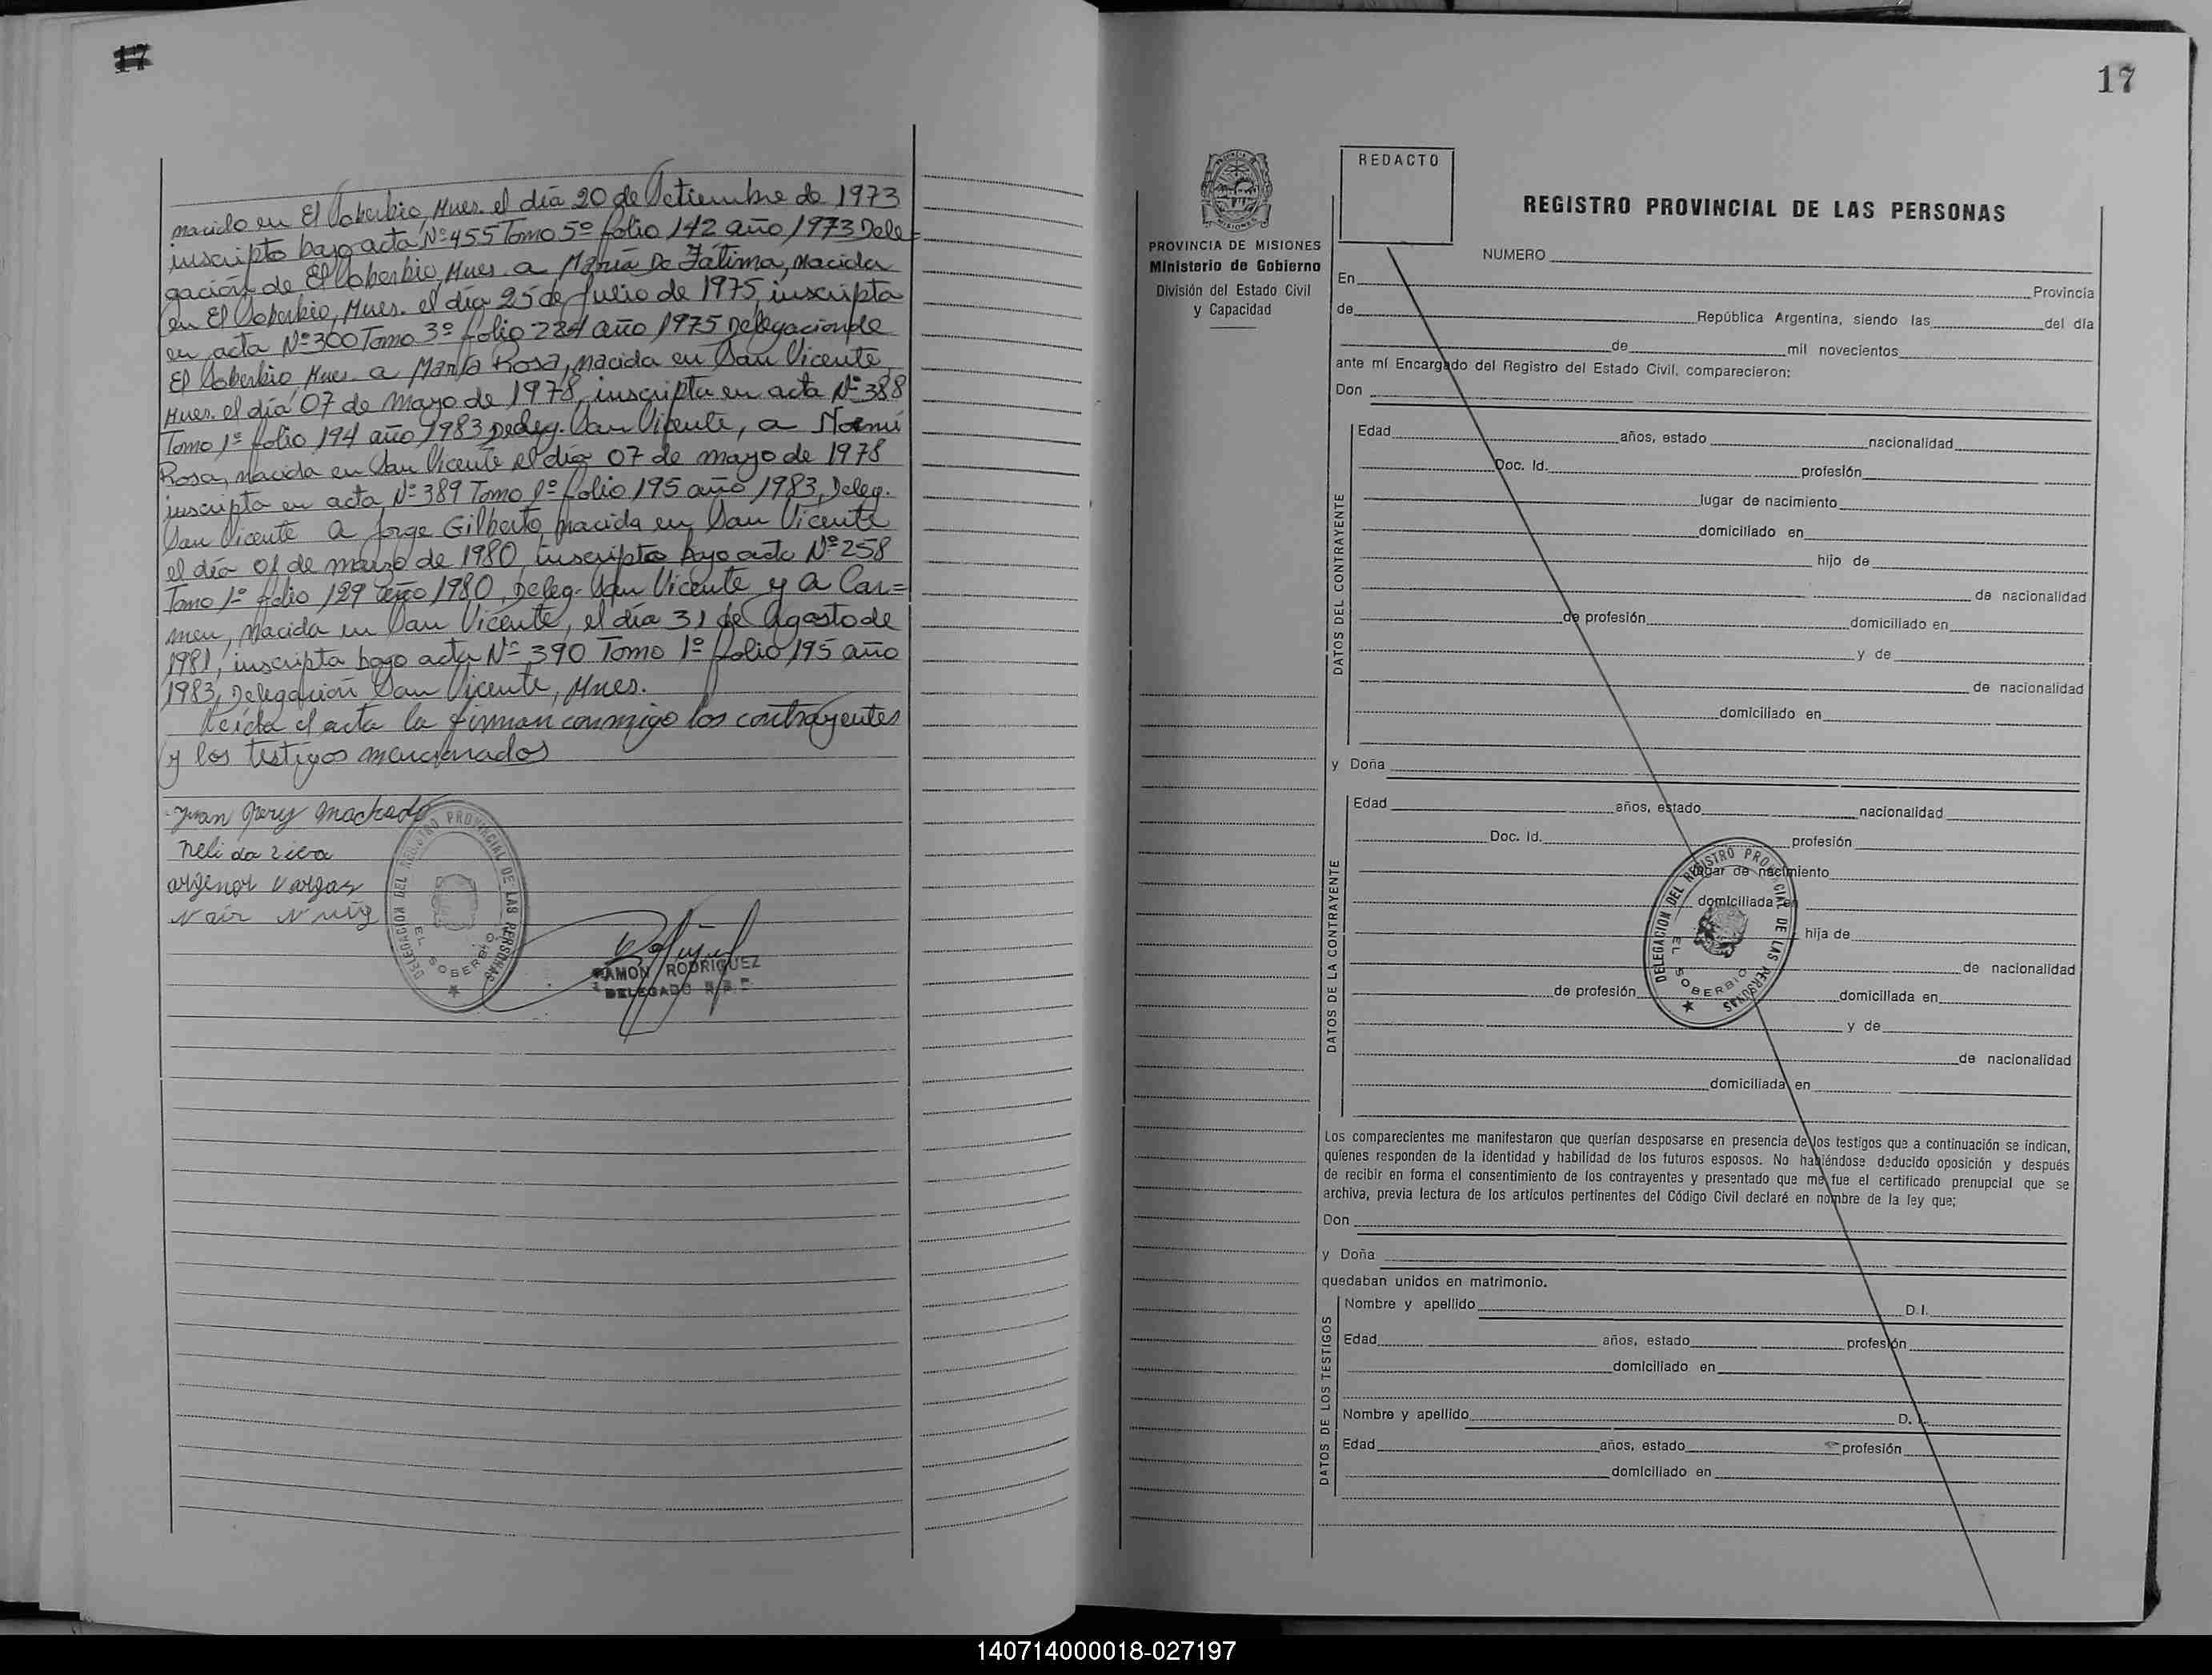 17
nacido en El Soberbio, Mnes. el día 20 de Setiembre de 1973
inscripto bajo acta Nº 455 Tomo 5º folio 142 año 1973 Dele=
gación de El Soberbio, Mnes. a María De Fátima, nacida
en El Soberbio, Mnes. el día 25 de Julio de 1975, inscripta
en acta Nº 300 Tomo 3º folio 224 año 1975 Delegacion de
El Soberbio, Mnes. a María Rosa, nacida en San Vicente,
Mnes. el día 07 de Mayo de 1978, inscripta en acta Nº 388
Tomo 1º folio 194 año 1983 Deleg. San Vicente, a Noemí
Rosa, nacida en San Vicente el día 07 de mayo de 1978
inscripta en acta Nº 389 Tomo 1º folio 195 año 1983, Deleg.
San Vicente a Jorge Gilberto, nacida en San Vicente
el día 01 de marzo de 1980, inscripto bajo acta Nº 258
Tomo 1º folio 129 año 1980, Deleg. San Vicente y a Car=
men, nacida en San Vicente, el día 31 de Agosto de
1981, inscripta bajo acta Nº 390 Tomo 1º folio 195 año
1983, Delegación San Vicente, Mnes.
Leída el acta la firman conmigo los contrayentes
y los testigos mencionados
Juan Machado
Nelida
argenor Vargas
Nair
DELEGACION DEL REGISTRO PROVINCIAL DE LAS PERSONAS
EL SOBERBIO
RAMON RODRIGUEZ
DELEGADO
17
PROVINCIA DE MISIONES
Ministerio de Gobierno
División del Estado Civil
y Capacidad
REDACTO
REGISTRO PROVINCIAL DE LAS PERSONAS
NUMERO
En Provincia
de República Argentina, siendo las del día
de mil novecientos
ante mí Encargado del Registro del Estado Civil, comparecieron:
Don
DATOS DEL CONTRAYENTE
Edad años, estado nacionalidad
Doc. Id. profesión
lugar de nacimiento
domiciliado en
hijo de
de nacionalidad
de profesión domiciliado en
y de
de nacionalidad
domiciliado en
y Doña
DATOS DE LA CONTRAYENTE
Edad años, estado nacionalidad
Doc. Id. profesión
lugar de nacimiento
domiciliada en
hija de
de nacionalidad
de profesión domiciliada en
y de
de nacionalidad
domiciliada en
DELEGACION DEL REGISTRO PROVINCIAL DE LAS PERSONAS
EL SOBERBIO
Los comparecientes me manifestaron que querían desposarse en presencia de los testigos que a continuación se indican,
quienes responden de la identidad y habilidad de los futuros esposos. No habiéndose deducido oposición y después
de recibir en forma el consentimiento de los contrayentes y presentado que me fue el certificado prenupcial que se
archiva, previa lectura de los artículos pertinentes del Código Civil declaré en nombre de la ley que;
Don
y Doña
quedaban unidos en matrimonio.
DATOS DE LOS TESTIGOS
Nombre y apellido D.I.
Edad años, estado profesión
domiciliado en
Nombre y apellido D. I.
Edad años, estado profesión
domiciliado en
140714000018-027197